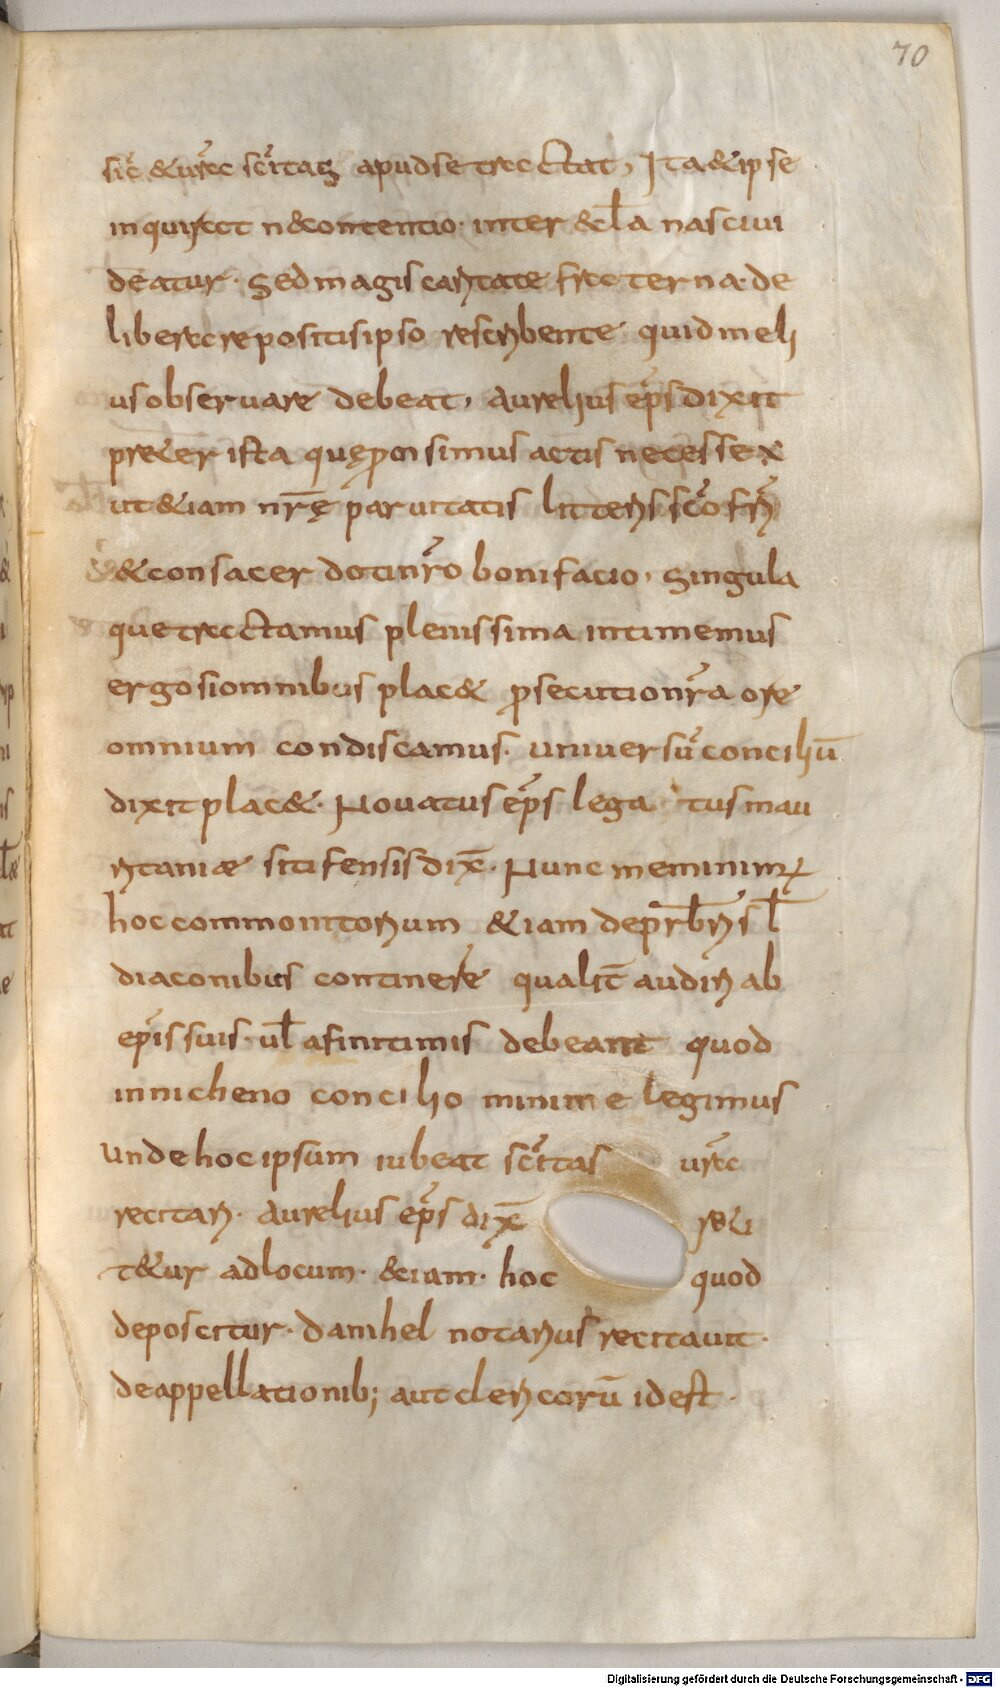 70
sic̄ & ur̄a sc̄itas apud se tractat, Ita & ipse
inquirat n& contentio· inter & ł a nasci ui
deatur· Sed magis caritate fraterna· de
libera repositis ipso rescribente quid meli
us observare debeat, aurelius ep̄s dixit
preter ista quę ꝓ cisimus actis necesse x
ut &iam nr̄ę paruitatis litteris sc̄o fr̄i
& consacerdoti nr̄o bonifacio, Singula
que tractamus plenissima intimemus
ergo si omnibus plac& ꝓsecution r̄a ore
omnium condiscamus· uniuersū conciliū
dixit plac&· Nouatus ep̄s lega tus mau
ritaniæ sitifensis dix̄· Nunc meminim᷒
hoc commonitorium &iam de pr̄bris ł
diaconibus continere qualit̄ audiri ab
ep̄is suis· uł a finitimis debeant quod
in nicheno concilio minime legimus
Unde hoc ipsum iubeat sc̄itas ur̄a
recitari· Aurelius ep̄s dix̄ reci
t&ur ad locum· &iam· hoc quod
deposcitur· Danihel notarius recitauit·
de appellationib; aut clericorū id est·
Digitalisierung gefördert durch die Deutsche Forschungsgemeinschaft - DFG